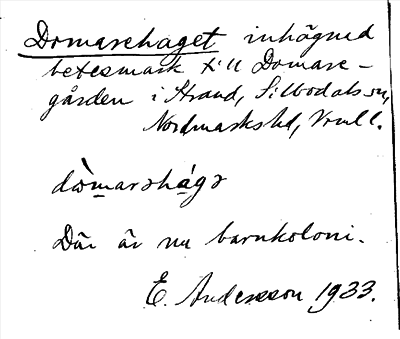 Domarehaget inhägned
betesmark till Domare-
gården i Strand, Silbodals sn,
Nordmarks hd, Vrml.
dòmarəhágə
Där är nu barnkoloni.
E. Andersson 1933.